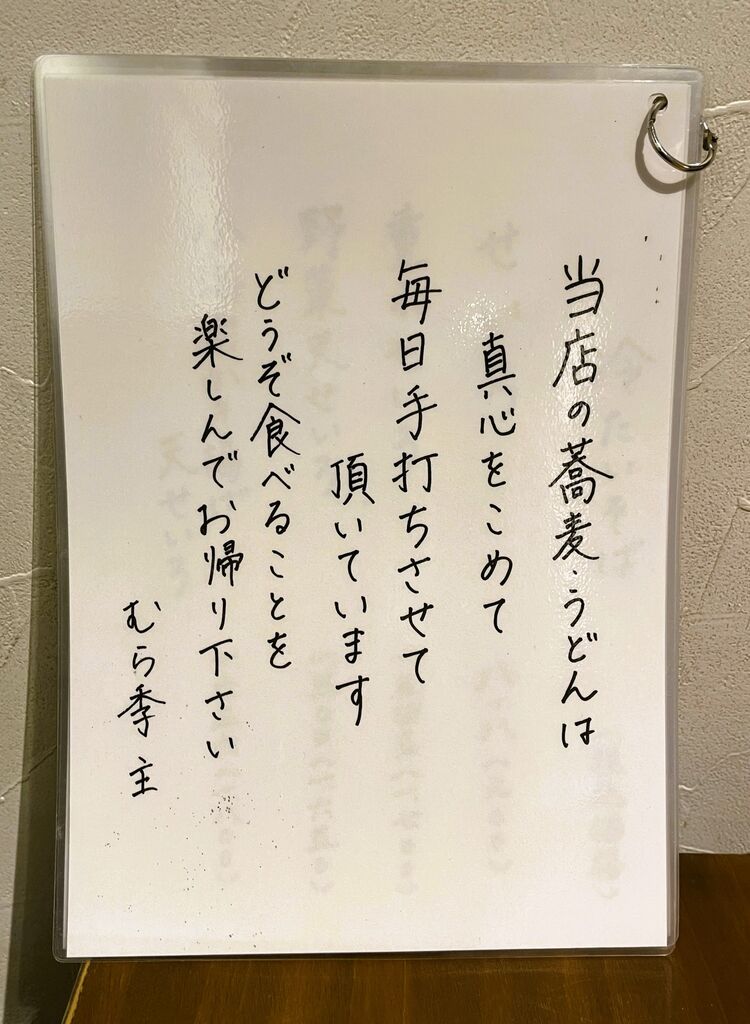 当店の蕎麦・うどんは
真心をこめて
毎日手打ちさせて
頂いています
どうぞ食べることを
楽しんでお帰り下さい
むら季 主